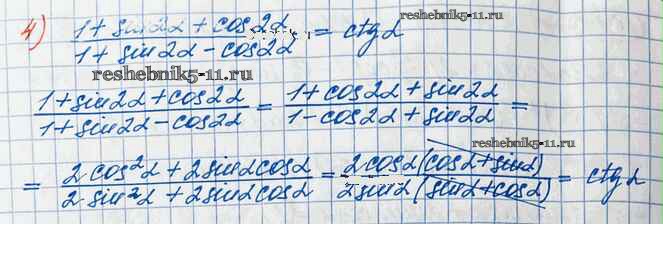 4) (1 + sin2α + cos2α)/(1 + sin2α - cos2α) = ctgα
reshebnik5-11.ru
reshebnik5-11.ru
(1 + sin2α + cos2α)/(1 + sin2α - cos2α) = (1 + cos2α + sin2α)/(1 - cos2α + sin2α) =
reshebnik5-11.ru
= (2cos²α + 2sinαcosα)/(2sin²α + 2sinαcosα) = (2cosα(cosα + sinα))/(2sinα(sinα + cosα)) = ctgα
reshebnik5-11.ru